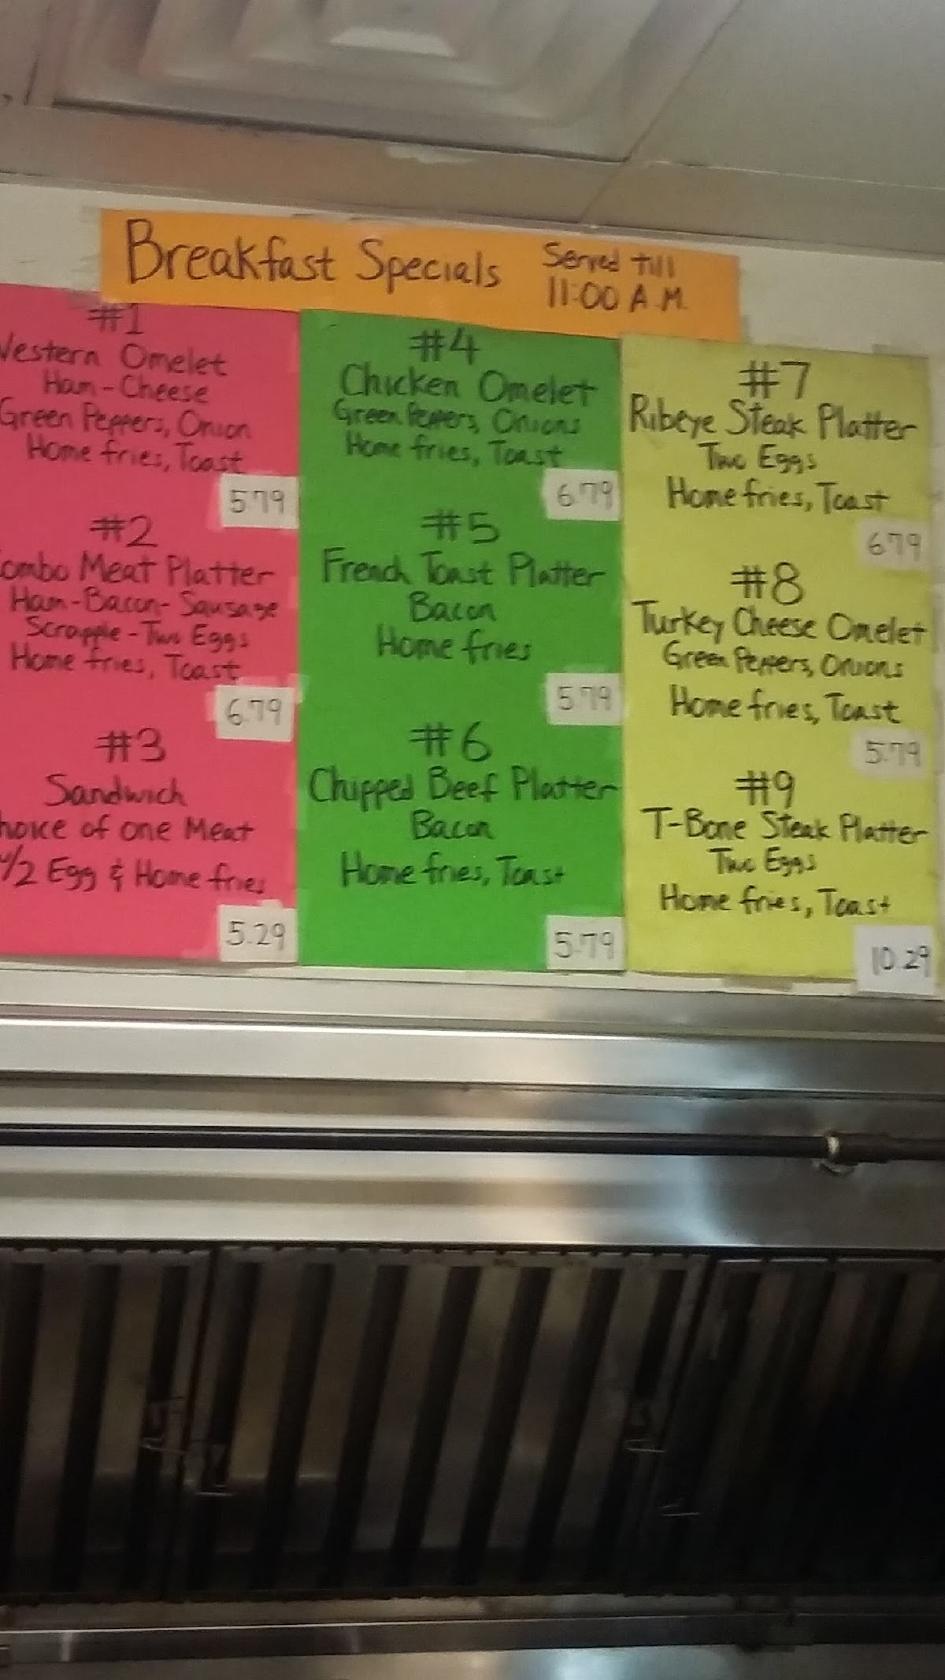 Breakfast Specials
Served till
11:00 A.M.
#1
Western Omelet
Ham-Cheese
Green Peppers, Onion
Home fries, Toast
5.79
#2
Combo Meat Platter
Ham-Bacon-Sausage
Scrapple-Two Eggs
Home fries, Toast
6.79
#3
Sandwich
Choice of one Meat
w/2 Egg & Home fries
5.29
#4
Chicken Omelet
Green Peppers, Onions
Home fries, Toast
6.79
#5
French Toast Platter
Bacon
Home fries
5.79
#6
Chipped Beef Platter
Bacon
Home fries, Toast
5.79
#7
Ribeye Steak Platter
Two Eggs
Home fries, Toast
6.79
#8
Turkey Cheese Omelet
Green Peppers, Onions
Home fries, Toast
5.79
#9
T-Bone Steak Platter
Two Eggs
Home fries, Toast
10.29